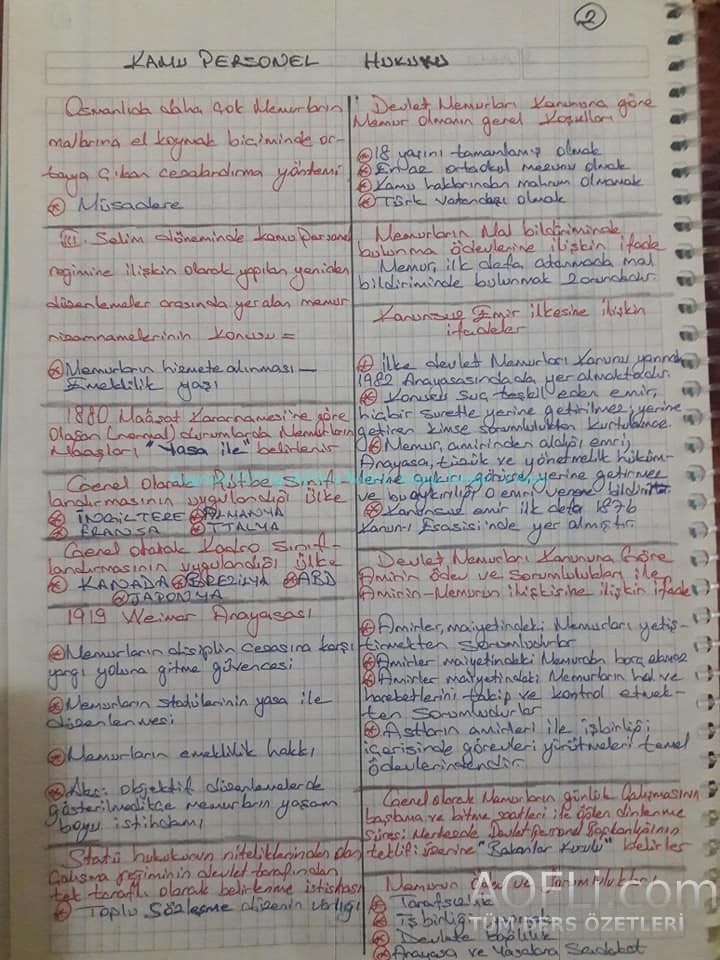 2
KAMU PERSONEL HUKUKU
Osmanlıda daha çok Memurların
mallarına el koymak biçiminde or-
taya çıkan cezalandırma yöntemi
* Müsadere
III. Selim döneminde kamu Personel
regimine ilişkin olarak yapılan yeniden
düzenlemeler arasında yer alan memur
nizamnamelerinin konusu =
* Memurların hizmete alınması -
Emeklilik yaşı
1880 Maaşat Kararnamesi'ne göre
Olağan (normal) durumlarda Memurların
Maaşları "Yasa ile" belirlenir
Genel olarak Rütbe Sınıf-
landırmasının uygulandığı ülke
* İNGİLTERE * ALMANYA
* FRANSA * İTALYA
Genel olarak Kadro Sınıf-
landırmasının uygulandığı ülke
* KANADA * BREZİLYA * ABD
* JAPONYA
1919 Weimar Anayasası
* Memurların disiplin cezasına karşı
yargı yoluna gitme güvencesi
* Memurların statülerinin yasa ile
düzenlenmesi
* Memurların emeklilik hakkı
* Aksi objektif düzenlemelerde
gösterilmedikçe memurların yaşam
boyu istihdamı
Statü hukukunun niteliklerinden olan
Çalışma rejiminin devlet tarafından
tek taraflı olarak belirlenme istisnası
* Toplu Sözleşme düzenin varlığı
Devlet Memurları Kanununa göre
Memur olmanın genel koşulları
* 18 yaşını tamamlamış olmak
* En az ortaokul mezunu olmak
* Kamu haklarından mahrum olmamak
* Türk vatandaşı olmak
Memurların Mal bildiriminde
bulunma ödevlerine ilişkin ifade
Memur, ilk defa atanmada mal
bildiriminde bulunmak zorundadır.
Kanunsuz Emir ilkesine ilişkin
ifadeler
* İlke devlet Memurları Kanunu yanında
1982 Anayasasında da yer almaktadır.
* Konusu suç teşkil eden emir,
hiçbir suretle yerine getirilmez; yerine
getiren kimse sorumluluktan kurtulamaz.
* Memur, amirinden aldığı emri,
Anayasa, tüzük ve yönetmelik hüküm-
lerine aykırı görürse, yerine getirmez
ve bu aykırılığı o emri verene bildirir.
* Kanunsuz emir ilk defa 1876
Kanun-ı Esasisi'nde yer almıştır.
Devlet Memurları Kanununa Göre
Amirin ödev ve sorumlulukları ile
Amirin-Memurun ilişkisine ilişkin ifade
* Amirler, maiyetindeki Memurları yetiş-
tirmekten sorumludurlar
* Amirler maiyetindeki Memurdan borç alamaz
* Amirler maiyetindeki Memurların hal ve
hareketlerini takip ve kontrol etmek-
ten sorumludurlar
* Astların amirleri ile işbirliği
içerisinde görevleri yürütmeleri temel
ödevlerindendir.
Genel olarak Memurların günlük Çalışmasının
başlama ve bitme saatleri ile öğlen dinlenme
Süresi Merkezde Devlet Personel Başkanlığının
teklifi üzerine "Bakanlar Kurulu" belirler
Memurun Ödev ve Sorumlulukları
* Tarafsızlık
* İşbirliği
* Devlete Bağlılık
* Anayasa ve Yasalara Sadakat
AOFLi.com
TÜM DERS ÖZETLERİ